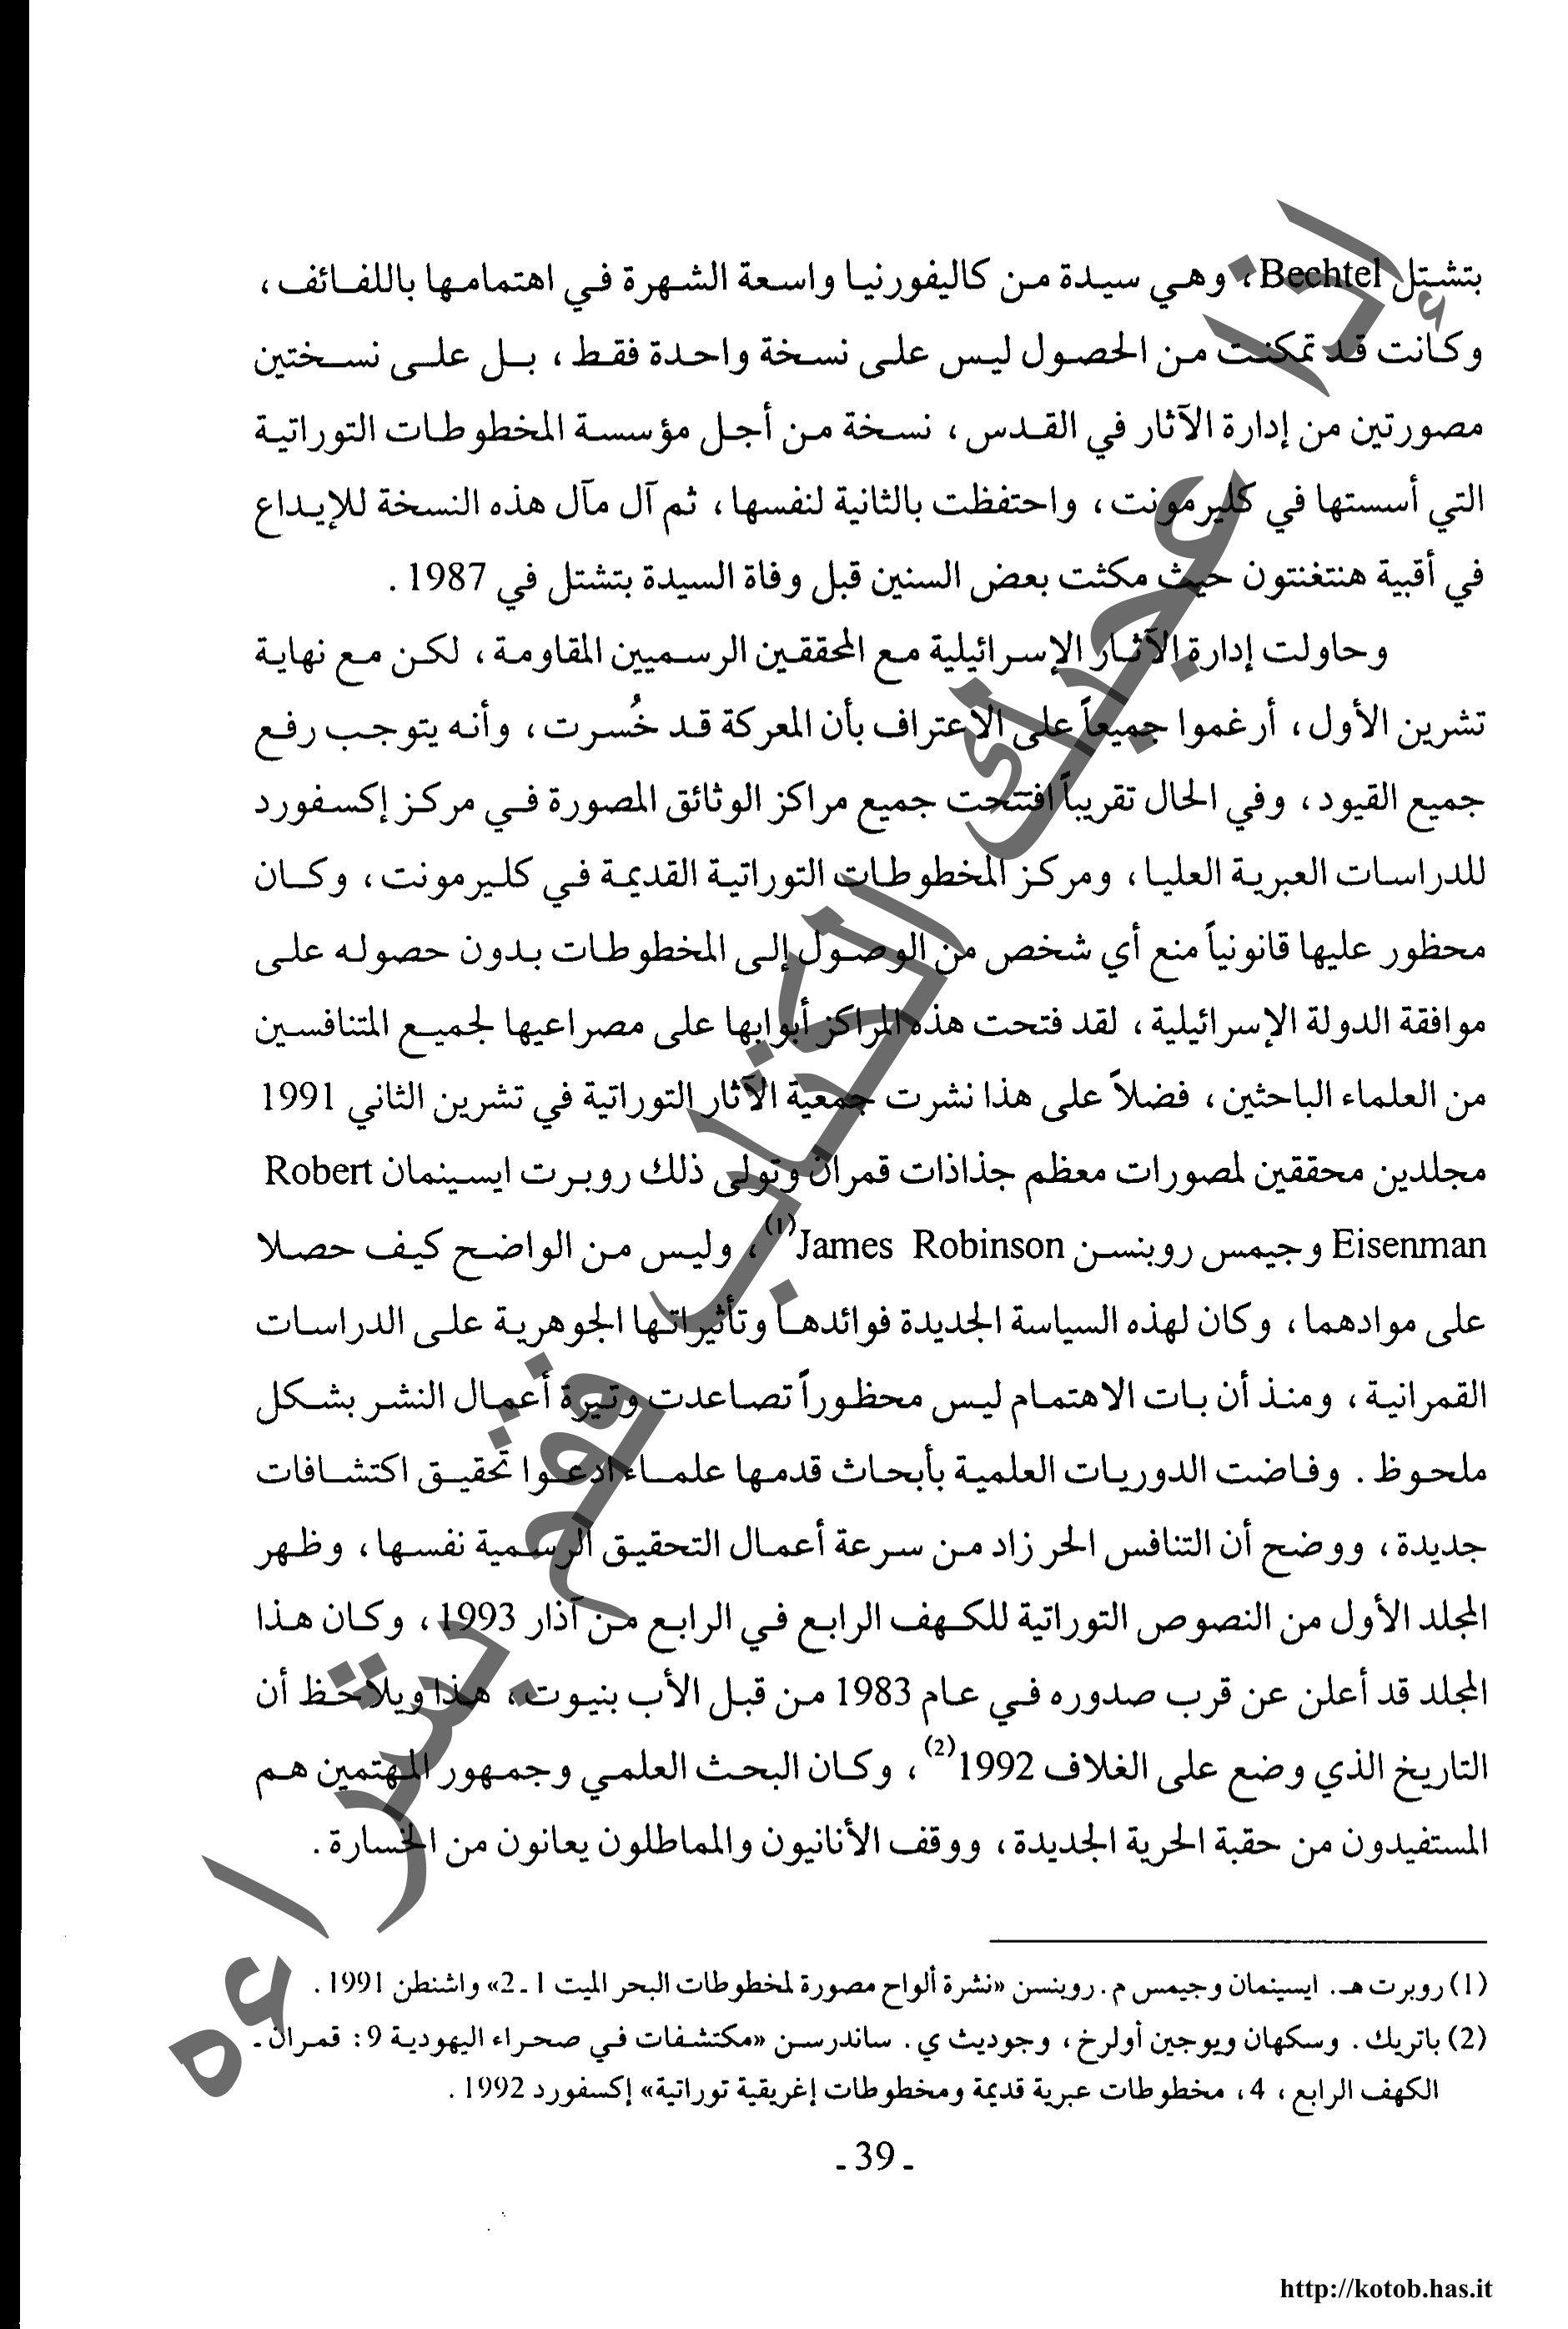 بتشتل Bechtel، وهي سيدة من كاليفورنيا واسعة الشهرة في اهتمامها باللفائف،
وكأنت قد تمكنت من الحصول ليس على نسخة واحدة فقط، بل على نسختين
مصورتين من إدارة الآثار في القدس، نسخة من أجل مؤسسة المخطوطات التوراتية
التي أسستها في كليرمونت، واحتفظت بالثانية لنفسها، ثم آل مآل هذه النسخة للإيداع
في أقبية هنتغنتون حيث مكثت بعض السنين قبل وفاة السيدة بتشتل في 1987.
وحاولت إدارة الآثار الإسرائيلية مع المحققين الرسميين المقاومة، لكن مع نهاية
تشرين الأول، أرغموا جميعاً على الاعتراف بأن المعركة قد خُسرت، وأنه يتوجب رفع
جميع القيود، وفي الحال تقريباً افتتحت جميع مراكز الوثائق المصورة في مركز إكسفورد
للدراسات العبرية العليا، ومركز المخطوطات التوراتية القديمة في كليرمونت، وكان
محظور عليها قانونياً منع أي شخص من الوصول إلى المخطوطات بدون حصوله على
موافقة الدولة الإسرائيلية، لقد فتحت هذه المراكز أبوابها على مصراعيها لجميع المتنافسين
من العلماء الباحثين، فضلاً على هذا نشرت جمعية الآثار التوراتية في تشرين الثاني 1991
مجلدين محققين لمصورات معظم جذاذات قمران وتولى ذلك روبرت ايسينمان Robert
Eisenman وجيمس روبنسن James Robinson(1)، وليس من الواضح كيف حصلا
على موادهما، وكان لهذه السياسة الجديدة فوائدها وتأثيراتها الجوهرية على الدراسات
القمرانية، ومنذ أن بات الاهتمام ليس محظوراً تصاعدت وتيرة أعمال النشر بشكل
ملحوظ. وفاضت الدوريات العلمية بأبحاث قدمها علماء ادعوا تحقيق اكتشافات
جديدة، ووضح أن التنافس الحر زاد من سرعة أعمال التحقيق الرسمية نفسها، وظهر
المجلد الأول من النصوص التوراتية للكهف الرابع في الرابع من آذار 1993، وكان هذا
المجلد قد أعلن عن قرب صدوره في عام 1983 من قبل الأب بنيوت، هذا ويلاحظ أن
التاريخ الذي وضع على الغلاف 1992(2)، وكان البحث العلمي وجمهور المهتمين هم
المستفيدون من حقبة الحرية الجديدة، ووقف الأنانيون والمماطلون يعانون من الخسارة.
(1) روبرت هـ. ايسينمان وجيمس م. روبنسن «نشرة ألواح مصورة لمخطوطات البحر الميت 1 ـ 2» واشنطن 1991.
(2) باتريك. وسكهان ويوجين أولرخ، وجوديث ي. ساندرسن «مكتشفات في صحراء اليهودية 9: قمران ـ
الكهف الرابع، 4، مخطوطات عبرية قديمة ومخطوطات إغريقية توراتية» إكسفورد 1992.
ـ 39 ـ
إذا أعجبك الكتاب فقم بشراءه
http://kotob.has.it